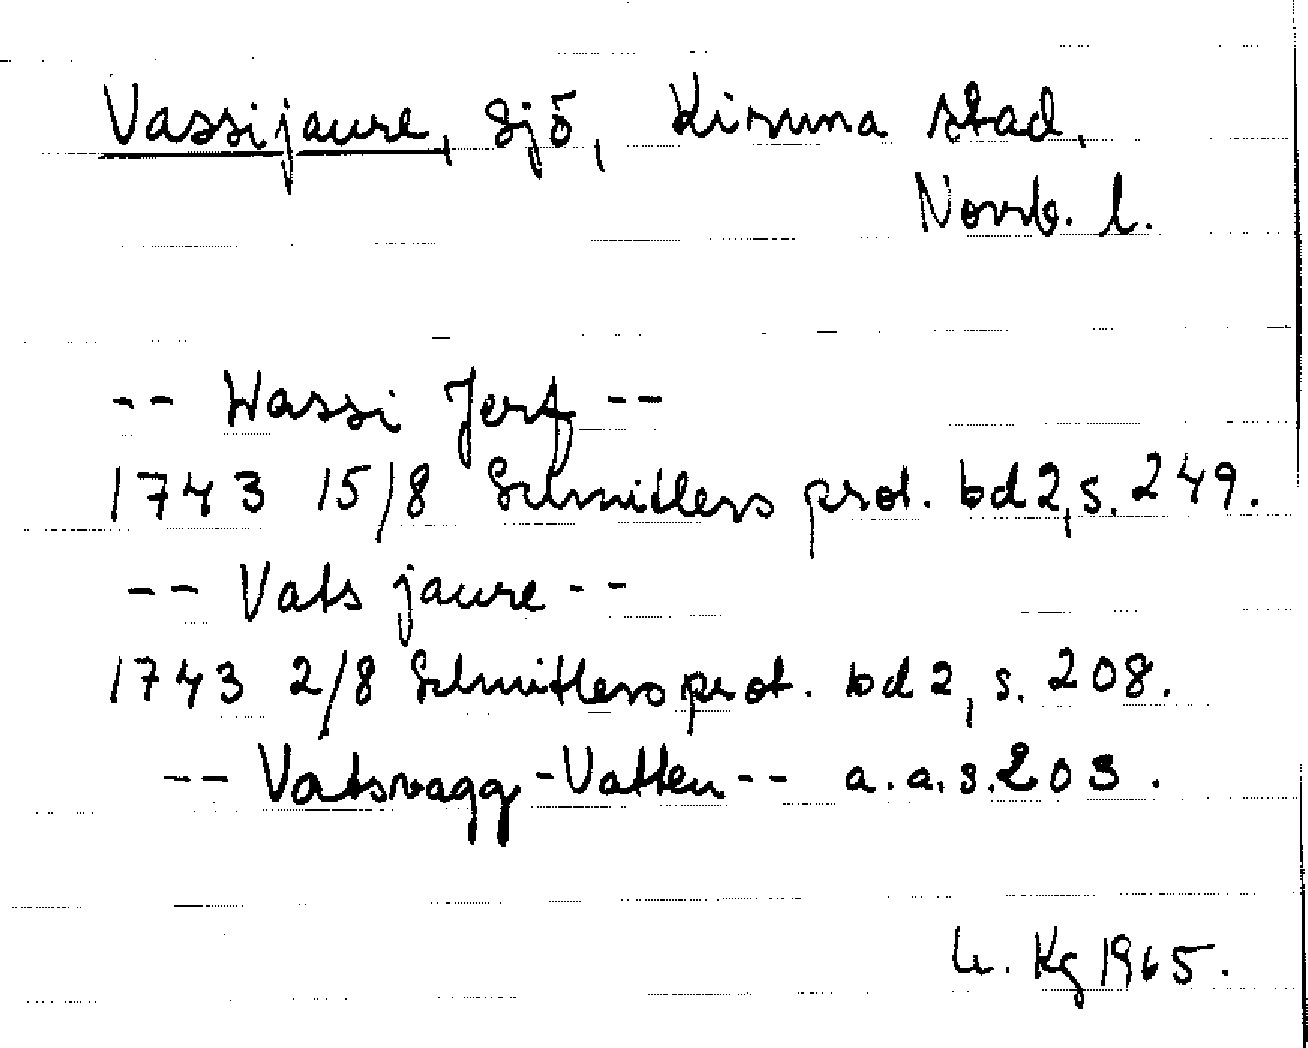 Vassijaure, sjö, Kiruna stad,
Norrb. l.
-- Wassi Jerf --
1743 15/8 Schnitlers prot. bd 2, s. 249.
-- Vats jaure --
1743 2/8 Schnitlers prot. bd 2, s. 208.
-- Vatsvagg-Vatten -- a.a.s. 203.
Kg 1965.